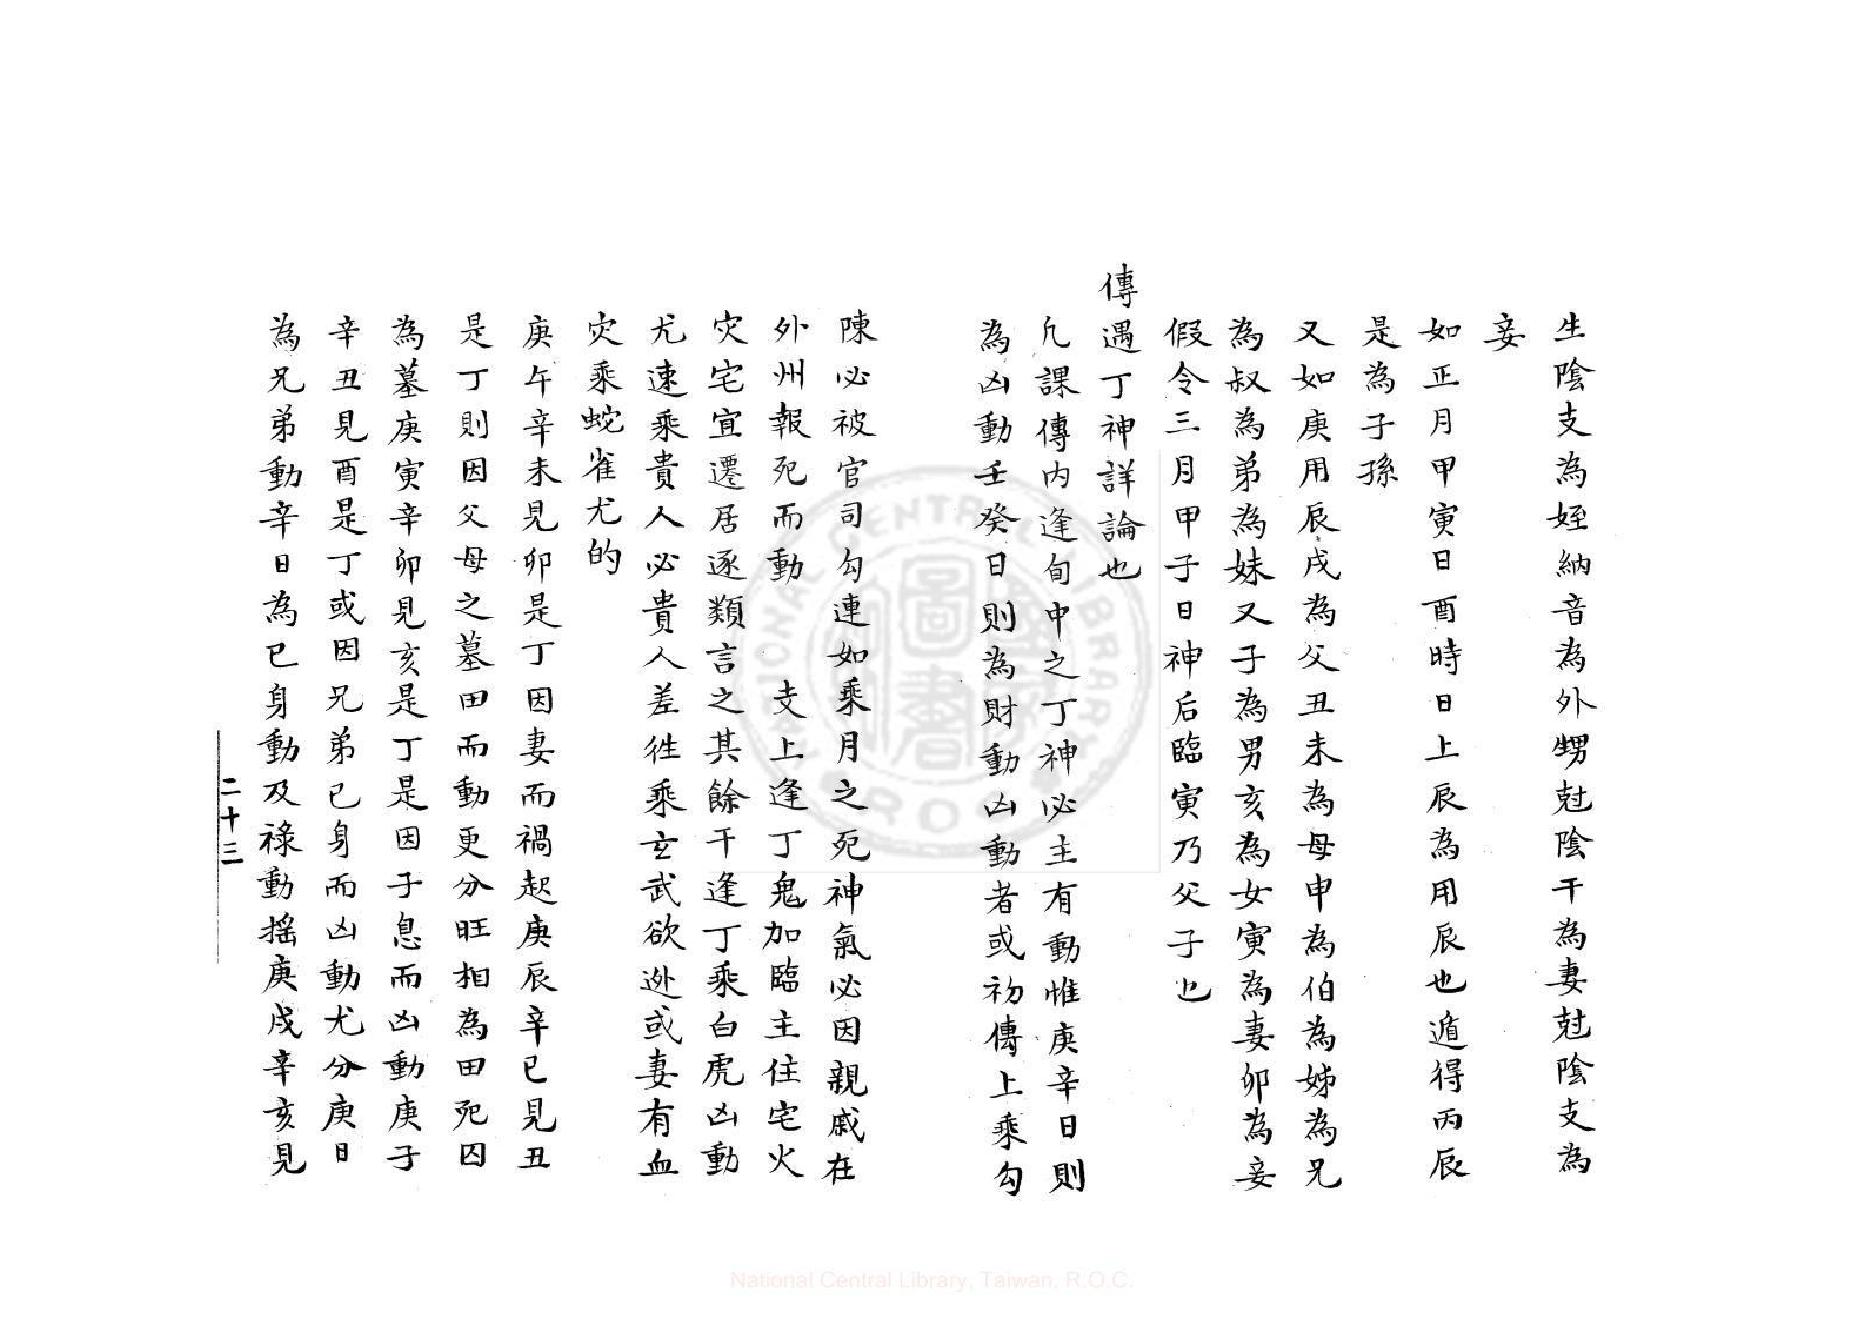 生陰支為姪納音為外甥尅陰干為妻尅陰支為
妾
如正月甲寅日酉時日上辰為用辰也遁得丙辰
是為子孫
又如庚用辰戌為父丑未為母申為伯為姊為兄
為叔為弟為妹又子為男亥為女寅為妻卯為妾
假令三月甲子日神后臨寅乃父子也
傳遇丁神詳論也
凡課傳內逢旬中之丁神必主有動惟庚辛日則
為凶動壬癸日則為財動凶動者或初傳上乘勾
陳必被官司勾連如乘月之死神氣必因親戚在
外州報死而動 支上逢丁鬼加臨主住宅火
灾宅宜遷居逐類言之其餘干逢丁乘白虎凶動
尤速乘貴人必貴人差徃乘玄武欲迯或妻有血
灾乘蛇雀尤的
庚午辛未見卯是丁因妻而禍起庚辰辛巳見丑
是丁則因父母之墓田而動更分旺相為田死囚
為墓庚寅辛卯見亥是丁是因子息而凶動庚子
辛丑見酉是丁或因兄弟已身而凶動尤分庚日
為兄弟動辛日為已身動及祿動搖庚戌辛亥見
二十三
National Central Library, Taiwan, R.O.C.